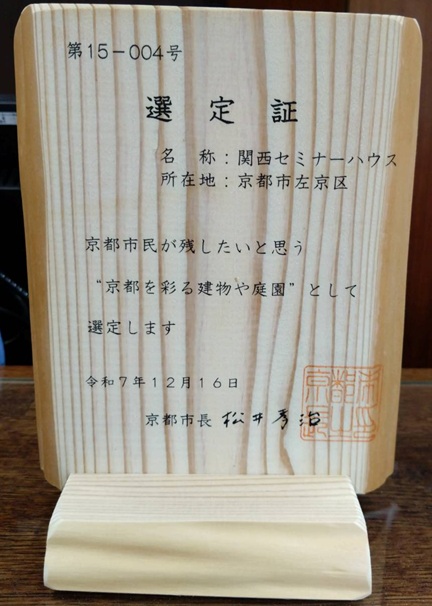 第15－004号
選定証
名　称：関西セミナーハウス
所在地：京都市左京区
京都市民が残したいと思う
“京都を彩る建物や庭園”として
選定します
令和7年12月16日
京都市長 松井孝治